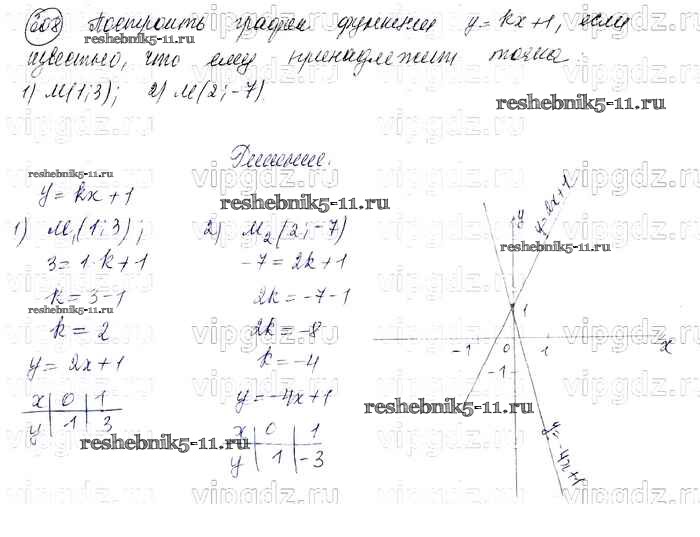 608 Построить график функции y = kx + 1, если
известно, что ему принадлежит точка
1) M(1;3); 2) M(2;-7).
reshebnik5-11.ru
Решение.
reshebnik5-11.ru
y = kx + 1
reshebnik5-11.ru
1) M₁(1;3);
3 = 1·k + 1
k = 3 - 1
reshebnik5-11.ru
k = 2
y = 2x + 1
x 0 1
y 1 3
reshebnik5-11.ru
2) M₂(2;-7)
-7 = 2k + 1
2k = -7 - 1
2k = -8
k = -4
y = -4x + 1
x 0 1
y 1 -3
y
y=2x+1
reshebnik5-11.ru
1
-1 0 1 x
-1
reshebnik5-11.ru
y=-4x+1
vipgdz.ru vipgdz.ru vipgdz.ru vipgdz.ru